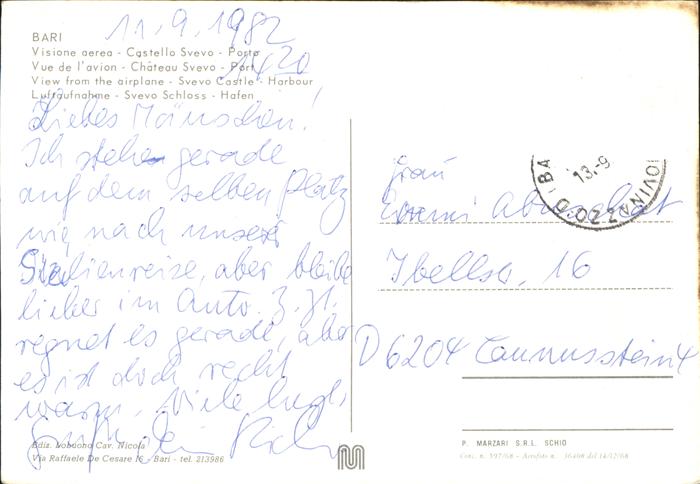 11.9.1982
1420
BARI
Visione aerea - Castello Svevo - Porto
Vue de l'avion - Château Svevo - Port
View from the airplane - Svevo Castle - Harbour
Luftaufnahme - Svevo Schloss - Hafen
Liebes Mönschen!
Ich stehe gerade
auf dem selben Platz
wie nach unserer
Sizilienreise, aber bleibe
lieber im Auto. Z. Zt.
regnet es gerade, aber
es ist doch recht
warm. Viele
Dein
Frau
16
D 6204 Taunusstein 4
13.-9
GIOVINAZZO DI BA
Ediz. Lobuono Cav. Nicola
Via Raffaele De Cesare 16 - Bari - tel. 213986
P. MARZARI S.R.L. SCHIO
Conc. n. 597/68 - Aerofoto n. 36408 del 14/12/68